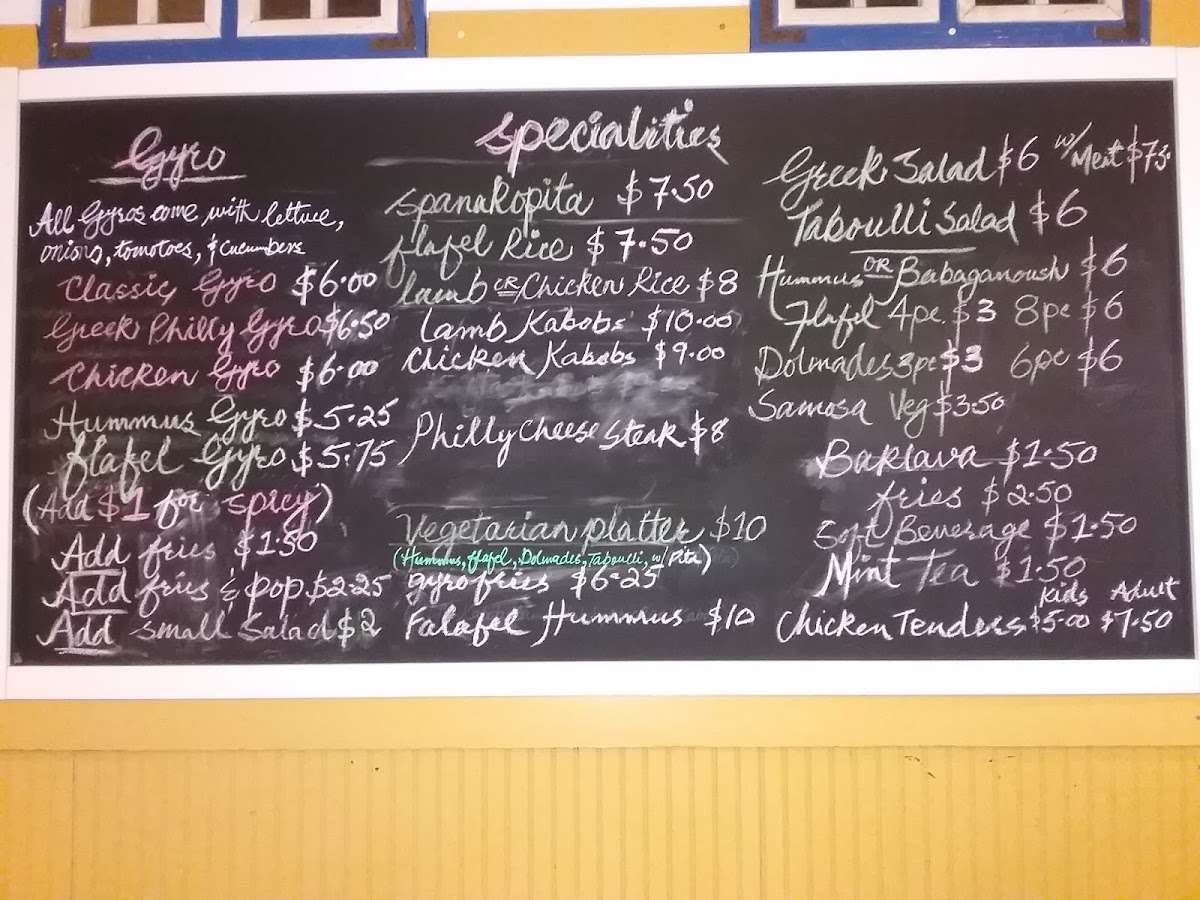 Gyro
All Gyros come with lettuce,
onions, tomotoes, & cucumbers
Classic Gyro $6.00
Greek Philly Gyro $6.50
Chicken Gyro $6.00
Hummus Gyro $5.25
flafel Gyro $5.75
(Add $1 for spicy)
Add fries $1.50
Add fries & pop $2.25
Add small Salad $2
Specialities
Spanakopita $7.50
flafel Rice $7.50
lamb OR Chicken Rice $8
Lamb Kabobs $10.00
Chicken Kabobs $9.00
Philly Cheese Steak $8
Vegetarian platter $10
(Hummus, flafel, Dolmades, Taboulli, w/ Pita)
gyro fries $6.25
Falafel Hummus $10
Greek Salad $6 w/ Meat $7.5
Taboulli Salad $6
Hummus OR Babaganoush $6
Flafel 4pc. $3 8pc $6
Dolmades 3pc $3 6pc $6
Samosa Veg $3.50
Baklava $1.50
fries $2.50
Soft Beverage $1.50
Mint Tea $1.50
Kids Adult
Chicken Tenders $5.00 $7.50